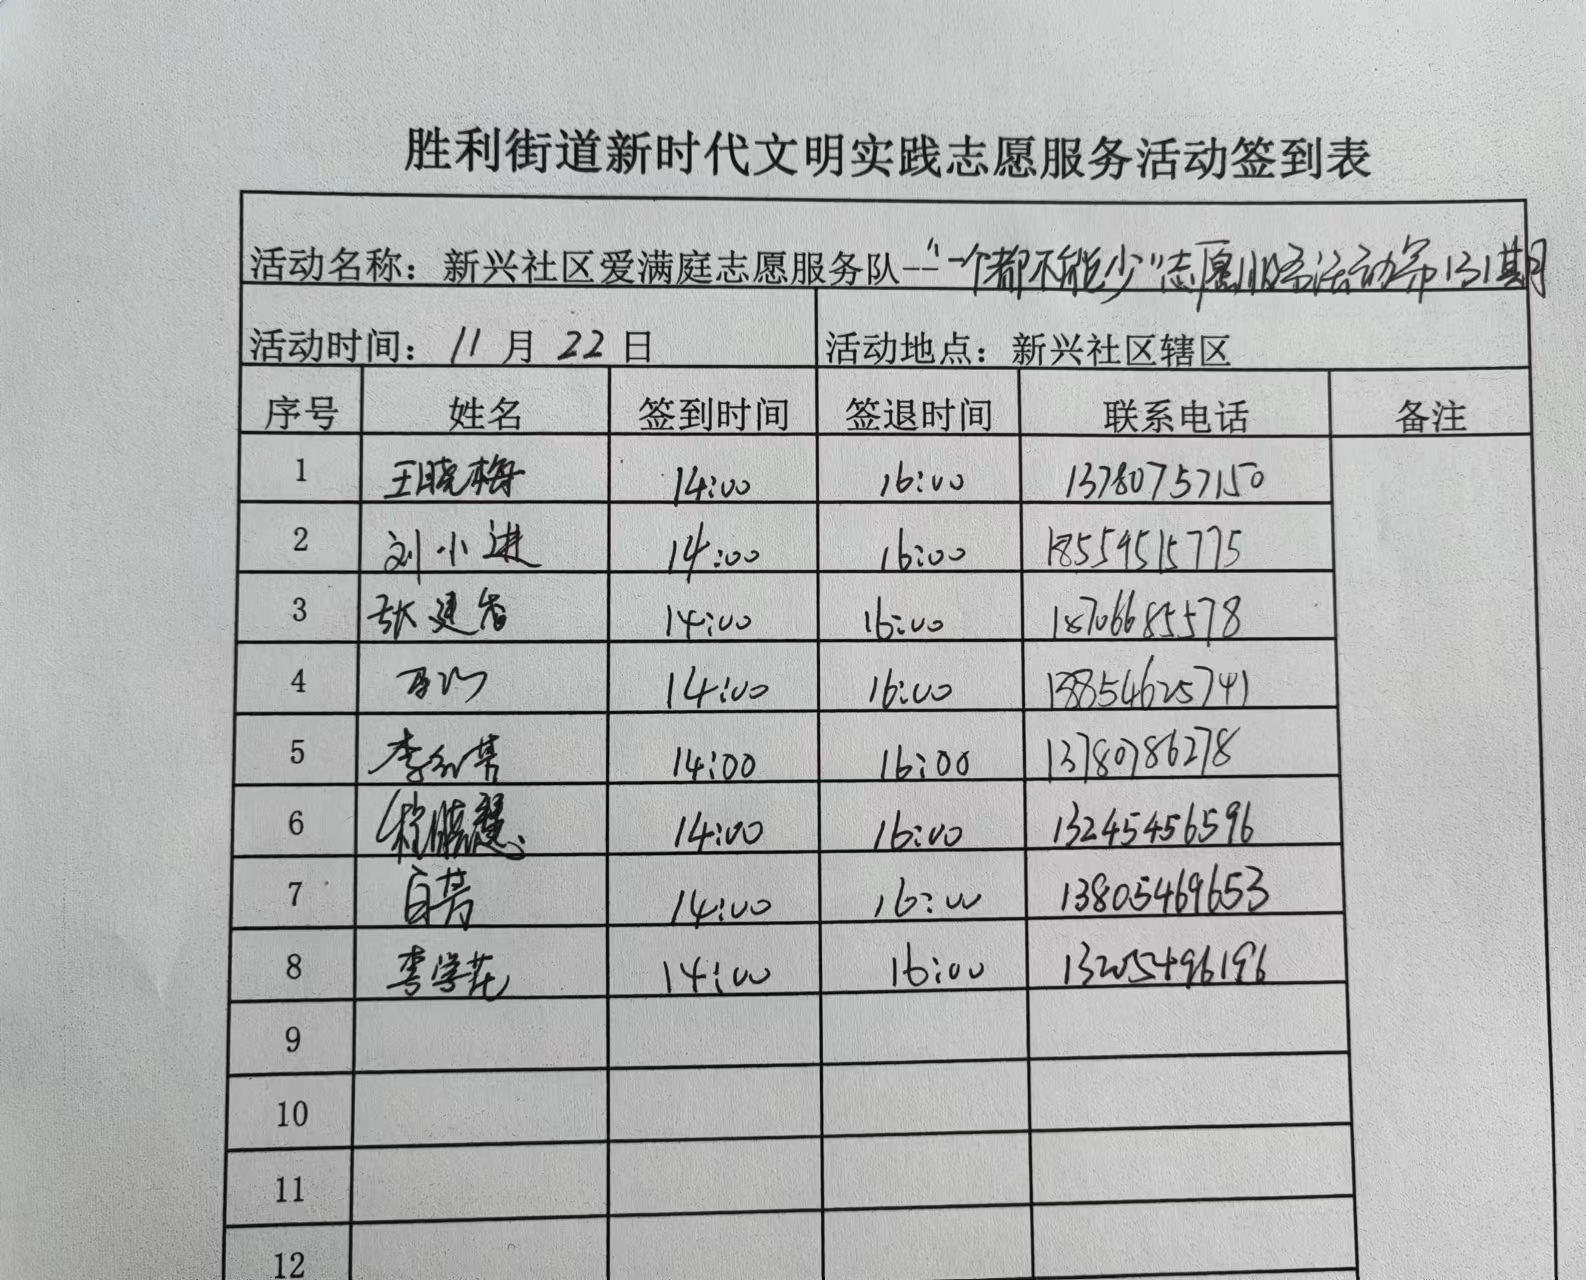 胜利街道新时代文明实践志愿服务活动签到表
活动名称：新兴社区爱满庭志愿服务队--"一个都不能少"志愿服务活动第131期
活动时间：11月22日 活动地点：新兴社区辖区
序号 姓名 签到时间 签退时间 联系电话 备注
1 王晓梅 14:00 16:00 13780757150
2 刘小进 14:00 16:00 18559515775
3 张建香 14:00 16:00 18706685578
4 14:00 16:00 13854625741
5 14:00 16:00 13780786278
6 14:00 16:00 13245456596
7 白芳 14:00 16:00 13805469653
8 李学花 14:00 16:00 13205496196
9
10
11
12